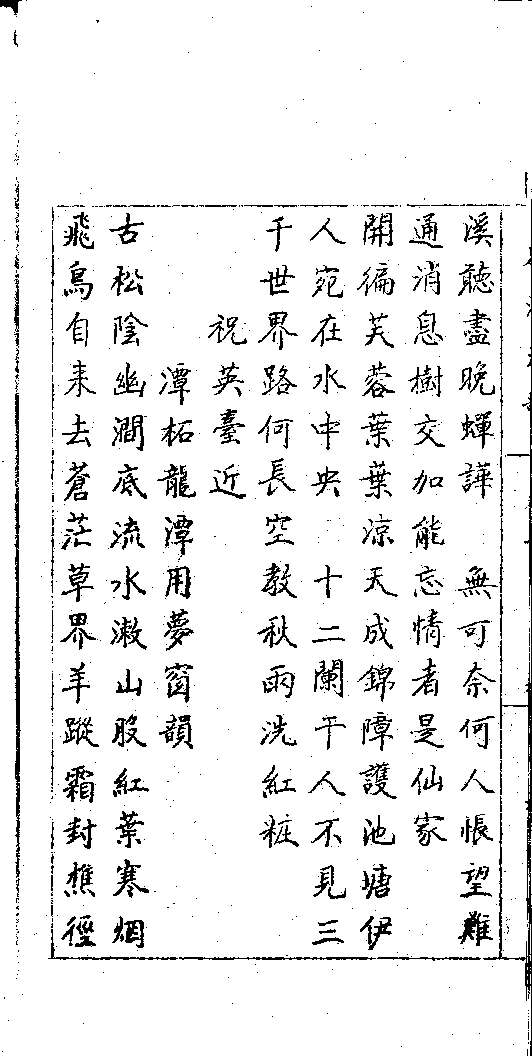 溪聽盡晚蟬譁　無可奈何人悵望難
通消息樹交加能忘情者是仙家
開徧芙蓉葉葉凉天成錦障護池塘伊
人宛在水中央　十二闌干人不見三
千世界路何長空教秋雨洗紅粧
祝英臺近
潭柘龍潭用夢窗韻
古松陰幽澗底流水漱山股紅葉寒烟
飛鳥自来去蒼茫草界羊蹤霜封樵徑